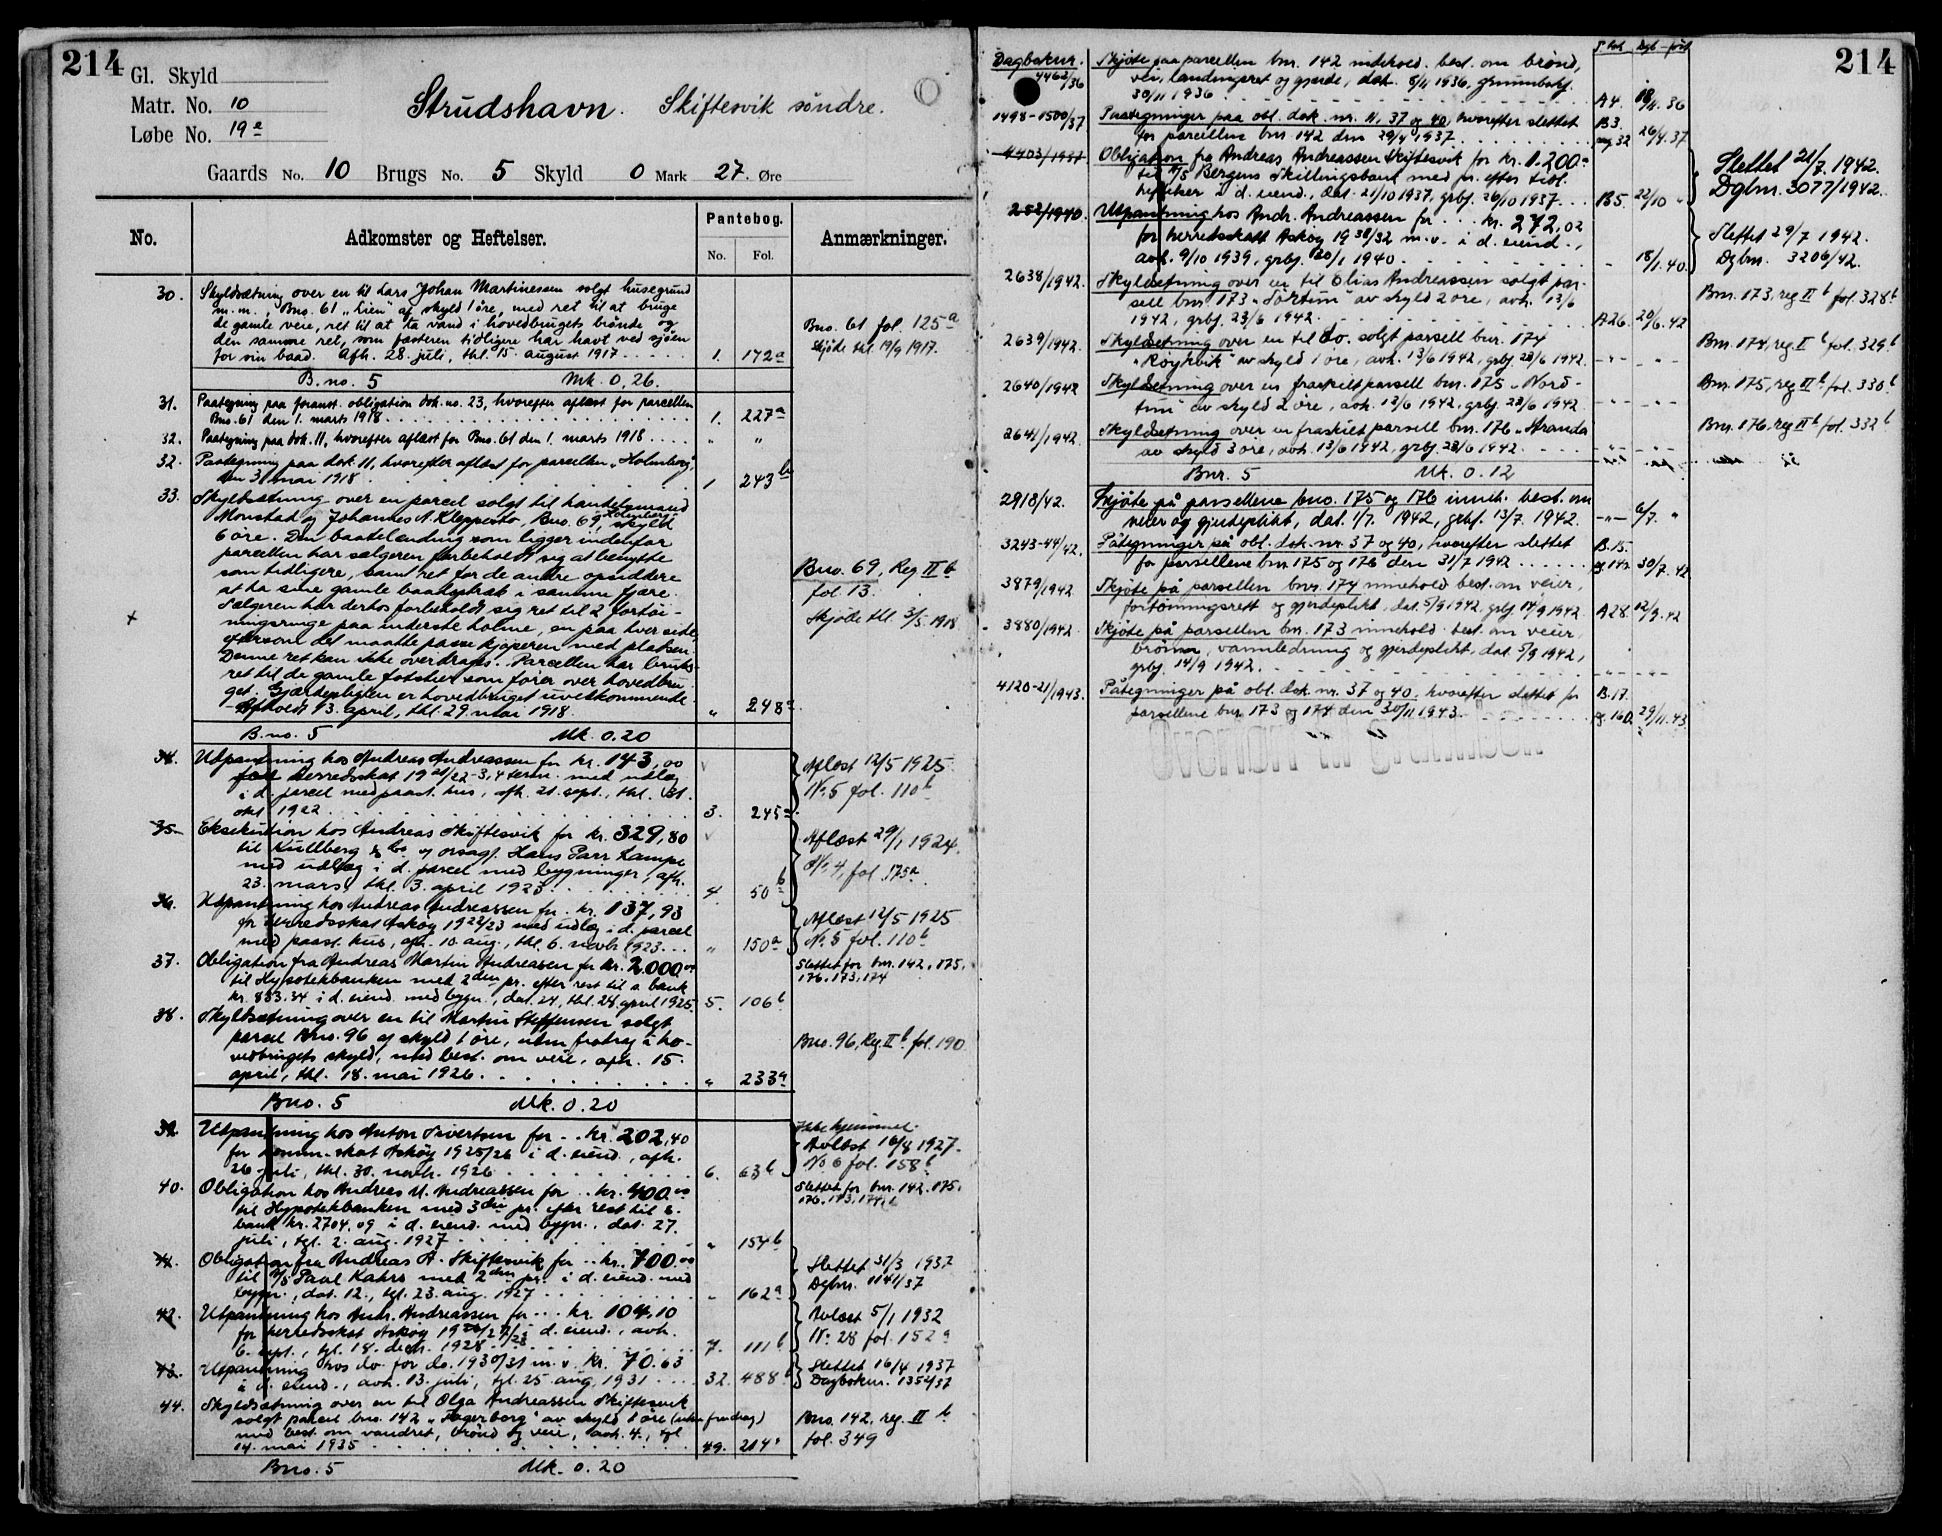 214
Gl. Skyld
Matr. No. 10
Løbe No. 19a
Strudshavn. Skiftesvik søndre.
Gaards No. 10 Brugs No. 5 Skyld 0 Mark 27. Øre
No. Adkomster og Heftelser. Pantebog. No. Fol. Anmærkninger.
30. Skyldsætning over en til Lars Johan Martinessen solgt husegrund
m.m., Bno. 61 „Lien" af skyld 1 øre, med ret til at bruge
de gamle veie, ret til at ta vand i hovedbrugets brønde og
den samme ret, som fæsteren tidligere har havt ved sjøen
for sin baad. Afh. 28. juli, thl. 15. august 1917 1. 172a
Bno. 61 fol. 125a
skjøde thl. 19/9 1917.
B.no. 5 Mk. 0,26.
31. Paategning paa foranst. obligation dok. no. 23, hvorefter aflæst for parcellen
Bno. 61 den 1. marts 1918 1. 227a
32. Paategning paa dok. 11, hvorefter aflæst for Bno. 61 den 1. marts 1918 " "
32. Paategning paa dok. 11, hvorefter aflæst for parcellen „Holmberg",
den 31 mai 1918 1 243b
33. Skyldsætning over en parcel solgt til handelsmand
Monstad og Johannes A. Kleppestø, Bno. 69, Holmberg, skyld
6 øre. Den baatelænding som ligger indenfor
parcellen har sælgeren forbeholdt sig at benytte
som tidligere, samt ret for de andre opsiddere
at ha sine gamle baatoptræk i samme fjære.
Sælgeren har derhos forbeholdt sig ret til 2 fortøi-
ningsringe paa inderste holme, en paa hver side
eftersom det maatte passe kjøperen med pladsen.
Denne ret kan ikke overdrages. Parcellen har bruks-
ret til de gamle fotstier som fører over hovedbru-
get. Gjærdepligten er hovedbruget uvedkommende.
Afholdt 13. april, thl. 29. mai 1918. " 248a
Bno. 69, Reg II b
fol 13.
Skjøde thl. 3/5 1918
B.no. 5 Mk. 0.20
34. Utpantning hos Andreas Andreassen for kr. 143,00
for Herredsskat 1921/22 - 3,4 termin med udlæg
i d. parcel med paast. hus, afh. 21. sept., thl.
okt 1922 3. 245a
Aflæst 12/5 1925
No. 5 fol. 110b
35. Eksekution hos Andreas Skiftesvik for kr. 329,80
til Kullberg & Co og orsagf. Hans Parr Lampe
med udlæg i d. parcel med bygninger, afh.
23. mars, thl. 3. april 1923 4. 50b
Aflæst 29/1 1924.
No. 4, fol 175a
36. Utpantning hos Andreas Andreassen for kr. 137,93
for herredsskat Askøy 1922/23 med udlæg i d. parcel
med paast. hus, afh. 10. aug., thl. 6. novbr 1923 " 150a
Aflæst 12/5 1925
No. 5 fol. 110b
37. Obligation fra Andreas Martin Andreasen for kr. 2000.00
til Hypotekbanken med 2den pr. efter rest til s. bank
kr. 833.34 i d. eiend. med bygn., dat. 24, thl. 28 april 1925 5. 106b
Slettet for bnr. 142, 175,
176, 173, 174
38. Skyldsætning over en til Martin Steffensen solgt
parcel Bno. 96 af skyld 1 øre, uten fradrag i ho-
vedbrugets skyld, med best. om veie, afh. 15.
april, thl. 18. mai 1926 " 233a
Bno. 96, Reg. II b. fol. 190
Bno. 5 Mk. 0.20
39. Utpantning hos Anton Sivertsen for kr. 202,40
for komm.skat Askøy 1925/26 i d. eiend., afh.
26 juli, thl. 30. novbr. 1926 6. 63b
Ikke hjemmel.
Avlæst 16/8 1927.
No 6 fol. 158b
40. Obligation hos Andreas M. Andreassen for kr. 400.00
til Hypotekbanken med 3die pr. efter rest til s.
bank kr. 2704.09 i d. eiend. med bygn., dat. 27.
juli, tgl. 2. aug. 1927 " 154b
Slettet for bnr. 142, 175,
176, 173, 174
41. Obligation fra Andreas A. Skiftesvik for kr. 700.00
til A/S Paul Kahrs med 2den pr. i d. eiend. med
bygn., dat. 12., tgl. 23. aug. 1927 " 162a
Slettet 31/3 1937
Dgbnr. 1141/37
42. Utpantning hos Andr. Andreassen for kr. 104,10
for herredsskat Askøy 1926/27/28 i d. eiend., avh.
6. sept., tgl. 18. desbr. 1928 7. 111b
Avlæst 5/1 1932
No 28 fol. 152a
43. Utpantning hos do. for do. 1930/31 m.v. kr. 70.63
i d. eiend., avh. 13. juli, tgl. 25 aug. 1931 32. 488b
Slettet 16/4 1937
Dagboknr. 1352/37
44. Skyldsætning over en til Olga Andreassen Skiftesvik
solgt parcel bno. 142 „Hagerborg" av skyld 1 øre (uten fradrag)
med best. om vandret, brønd og veie, avh. 4., tgl.
14. mai 1935 49. 214a
Bno. 142, reg. II b
fol. 349
Bno. 5 Mk. 0.20
214
Dagboknr. P.bok Dgb-ført
4462/36 Skjøte paa parcellen bnr. 142 indehold. best. om brønd,
vei, landingsret og gjerde, dat. 8/11 1936, grunnbokf.
30/11 1936 A4. 18/11.36
1498-1500/37 Paategninger paa obl. dok. nr. 11, 37 og 40, hvorefter slettet
for parcellen bnr 142 den 29/4 1937 B3. og 32 26/4.37
4403/1937 Obligation fra Andreas Andreassen Skiftesvik for kr. 1.200.-
til A/S Bergens Skillingsbank med pr. efter tidl.
heftelser i d. eiend., dat. 21/10 1937, grbf. 26/10 1937 B5. 22/10 "
Slettet 21/7 1942.
Dgbnr. 3077/1942.
252/1940. Utpantning hos Andr. Andreassen for kr. 272,02
for herredsskatt Askøy 1938/32 m.v. i d. eiend.,
avh. 9/10 1939, grbf. 20/1 1940 - 18/1.40
Slettet 29/7 1942.
Dgbnr. 3206/42.
2638/1942. Skyldsetning over en til Elias Andreassen solgt par-
sell bnr. 173 „Sørtun" av skyld 2 øre, avh. 13/6
1942, grbf. 23/6 1942 A26. 20/6.42
Bnr. 173, reg II b fol. 328b
2639/1942. Skyldsetning over en til do. solgt parsell bnr. 174
„Røykvik" av skyld 1 øre, avh. 13/6 1942, grbf. 23/6 1942. -"- -"-
Bnr. 174, reg II b fol. 329b
2640/1942 Skyldsetning over en fraskilt parsell bnr. 175 „Nord-
tun" av skyld 2 øre, avh. 13/6 1942, grbf. 23/6 1942 -"- -"-
Bnr. 175, reg II b fol. 330b
2641/1942. Skyldsetning over en fraskilt parsell bnr. 176 „Stranda"
av skyld 3 øre, avh. 13/6 1942, grbf. 23/6 1942. -"- -"-
Bnr. 176, reg II b fol. 332b
Bnr. 5 Mk. 0.12
2918/42. Skjøte på parsellene bno. 175 og 176 inneh. best. om
veier og gjerdeplikt, dat. 1/7. 1942, grbf. 13/7 1942. -"- 6/7. "
3243-44/42. Påtegninger på obl. dok. nr. 37 og 40, hvorefter slettet
for parsellene bnr 175 og 176 den 31/7 1942 B.15. og 142 30/7.42
3879/1942 Skjøte på parsellen bnr. 174 innehold best. om veier,
fortøiningsrett og gjerdeplikt, dat. 5/9 1942, grbf. 14/9 1942 A28. 12/9.42
3880/1942. Skjøte på parsellen bnr. 173 innehold. best. om veier,
brønn, vannledning og gjerdeplikt, dat. 5/9 1942,
grbf. 14/9 1942. -"- -"-
4120-21/1943. Påtegninger på obl. dok. nr. 37 og 40, hvorefter slettet for
parsellene bnr 173 og 174 den 30/11 1943. B.17. og 160. 29/11.43
Overført til grunnbok